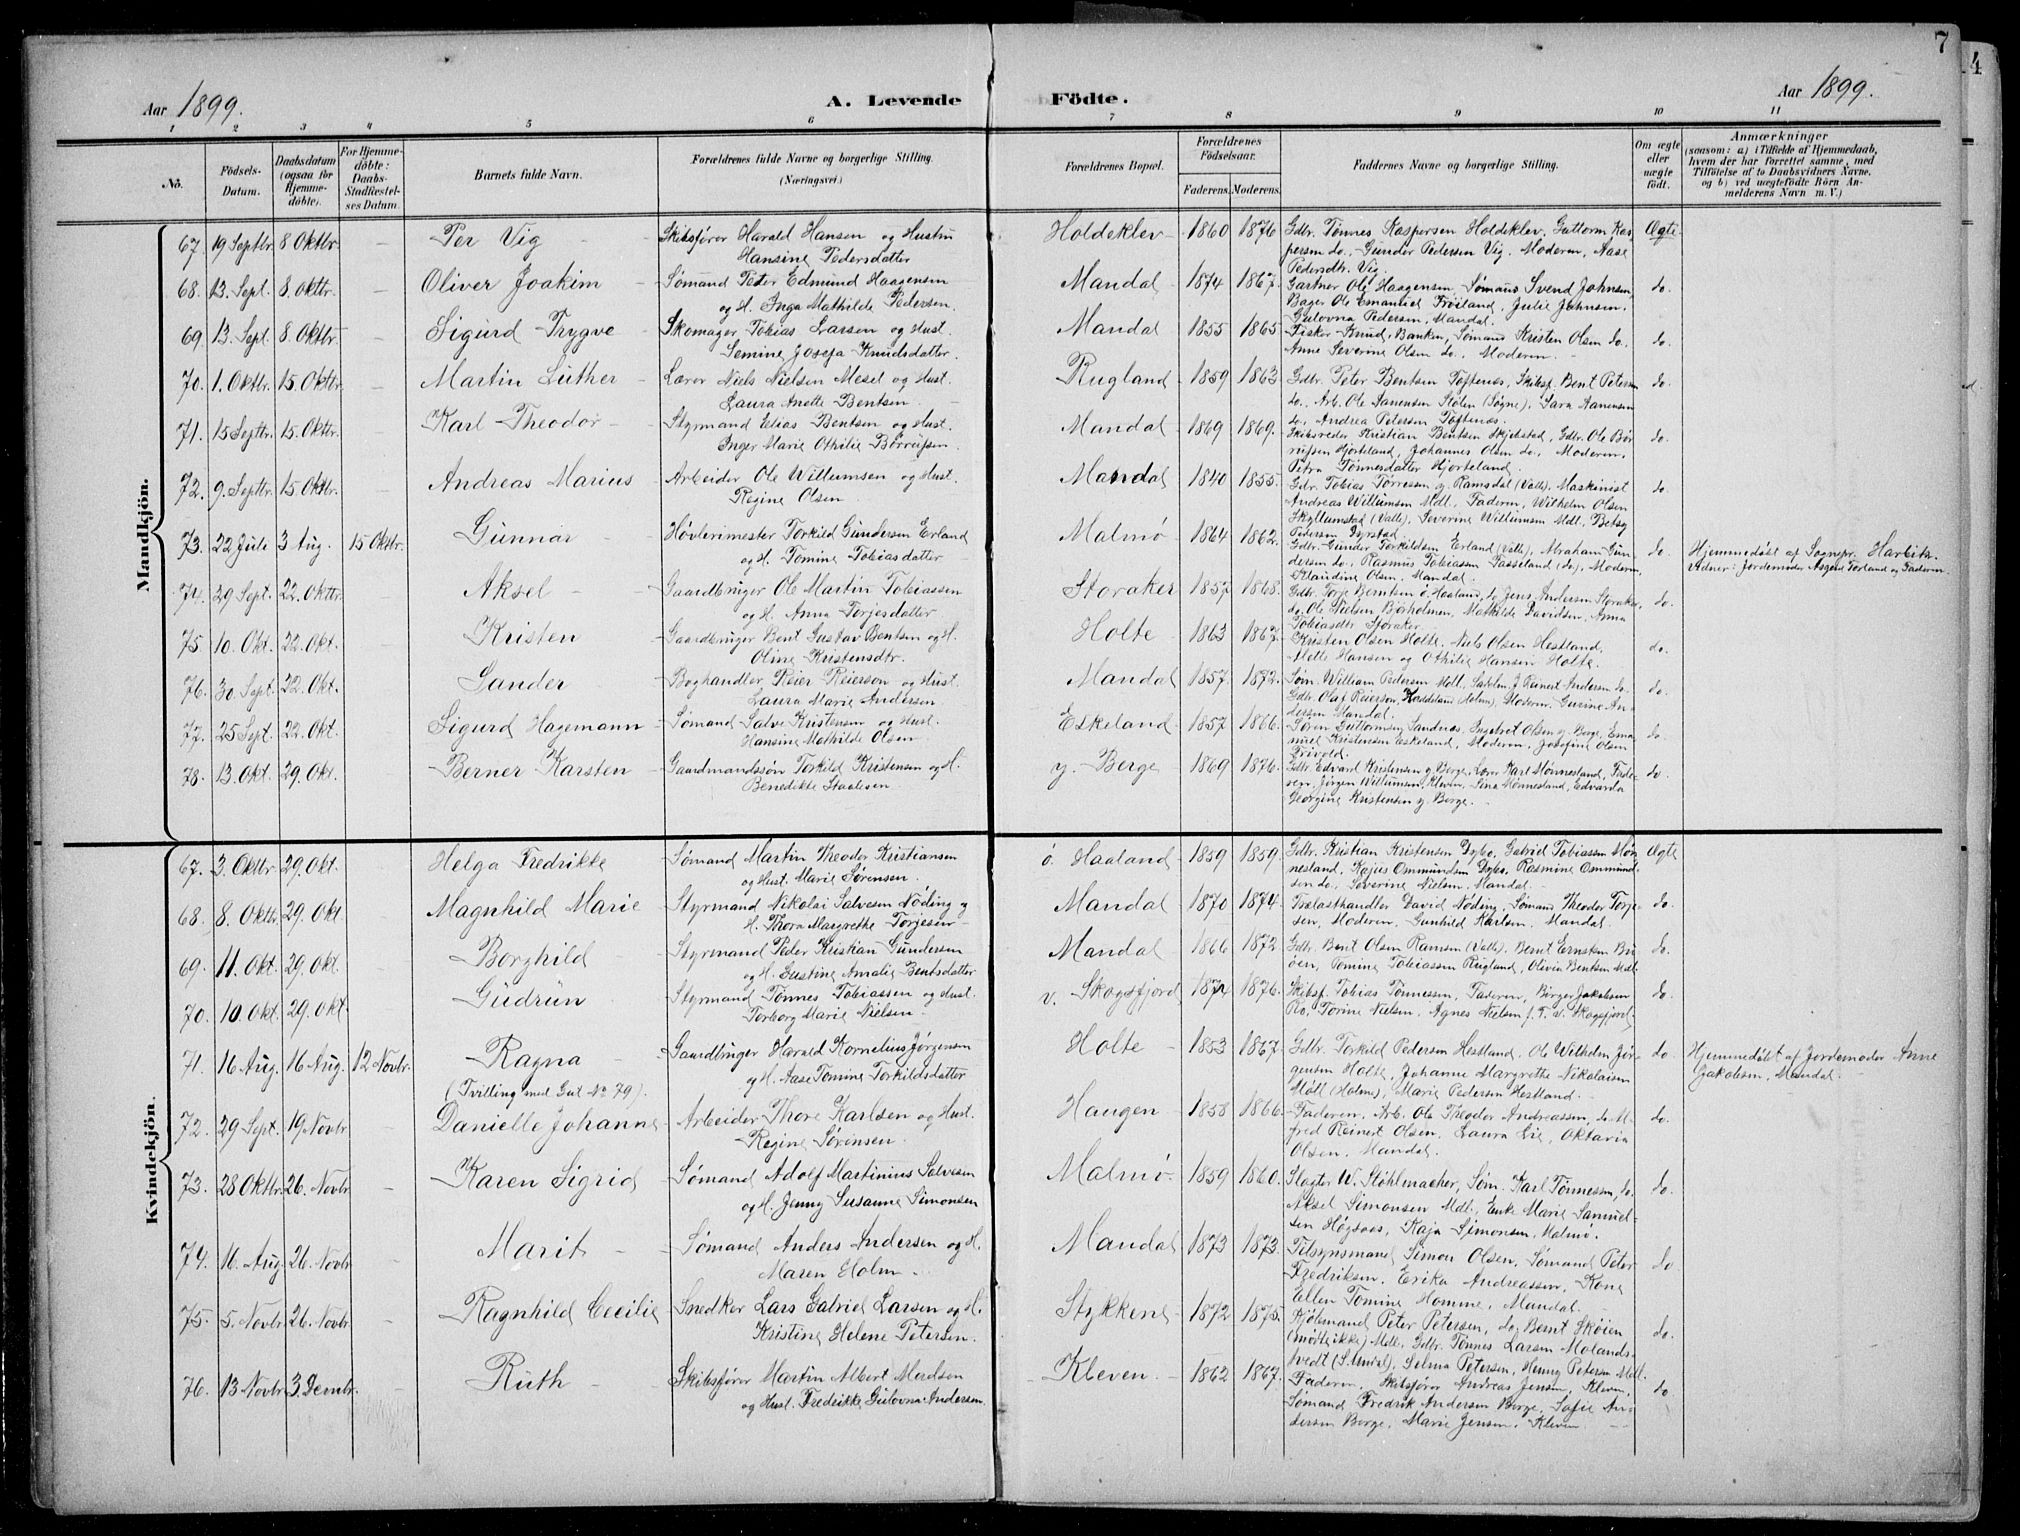 7
4
Aar 1899.
A. Levende Födte.
Aar 1899.
1 2 3 4 5 6 7 8 9 10 11
No.
Födsels-Datum.
Daabsdatum (ogsaa for Hjemme-döbte).
For Hjemme-döbte: Daabs-Stadfæstel-ses Datum.
Barnets fulde Navn.
Forældrenes fulde Navne og borgerlige Stilling. (Næringsvei.)
Forældrenes Bopæl.
Forældrenes Födselsaar.
Faderens. Moderens.
Faddernes Navne og borgerlige Stilling.
Om ægte eller uægte födt.
Anmærkninger (saasom: a) i Tilfælde af Hjemmedaab, hvem der har forrettet samme, med Tilföielse af to Daabsvidners Navne, og b) ved uægtefödte Börn An-melderens Navn m. V.)
Mandkjön.
67. 19 Septbr. 8 Oktbr. - Per Vig - Skibsfører Harald Hansen og Hustru Hansine Pedersdatter Holdeklev 1860 1876 Gdbr. Tønnes Kaspersen Holdeklev, Guttorm Kas-persen do., Gunder Pedersen Vig, Moderen, Aase Pedersdtr. Vig. Ægte
68. 13. Sept. 8. Oktbr. - Oliver Joakim - Sømand Peter Edmund Haagensen og H. Inga Mathilde Pedersen Mandal 1874 1867. Gartner Ole Haagensen, Sømand Svend Johnsen, Bager Ole Emanuel Frøiland, Julie Johnsen, Gulovna Pedersen, Mandal. do.
69. 13. Sept. 8 Oktbr. - Sigurd Trygve - Skomager Tobias Larsen og Hust. Semine Josefa Knudsdatter. Mandal 1855 1865 Fisker Knud, Banken, Sømand Kristen Olsen do., Anne Severine Olsen do., Moderen. do.
70. 1. Oktbr. 15. Oktbr. - Martin Luther - Lærer Niels Nielsen Mesel og Hust. Laura Anette Bentsen Rugland 1859 1863 Gdbr. Peter Bentsen Toftenes, Skibsf. Bent Petersen do., Arb. Ole Aanensen Stølen (Søgne), Sara Aanensen do., Andrea Petersen Toftenes. do.
71. 15 Septbr. 15. Oktbr. - Karl Theodor - Styrmand Elias Bentsen og Hust. Inger Marie Othilie Børrufsen Mandal 1869 1869. Skibsreder Kristian Bentsen Skjebstad, Gdbr. Ole Bør-rufsen Hjorteland, Johannes Olsen do., Moderen, Petra Tønnesdatter Hjorteland. do.
72. 9. Septbr. 15 Oktbr. - Andreas Marius - Arbeider Ole Willumsen og Hust. Regine Olsen Mandal 1840 1855. Gdbr. Tobias Tørresen y. Ramsdal (Valle), Maskinist Andreas Willumsen Mdl., Faderen, Wilhelm Olsen Skyllumstad (Valle), Severine Willumsen Mdl., Betsy Pedersen Dyrstad. do.
73. 22 Juli 3 Aug. 15 Oktbr. Gunnar - Høvlerimester Torkild Gundersen Erland og H. Tomine Tobiasdatter Malmø 1864 1862. Gdbr. Gunder Torkildsen Erland (Valle), Abraham Gun-dersen do., Rasmus Tobiassen Tasseland (do), Moderen, Klaudine Olsen, Mandal. do. Hjemmedøbt af Sognepr. Harbitz. Vidner: Jordemoder Torland og Faderen.
74. 29 Sept. 22. Oktbr. - Aksel - Gaardbruger Ole Martin Tobiassen og H. Anna Torjesdatter Storaker 1857 1868. Gdbr. Torje Berntsen ö. Haaland, do Jens Andersen Storaker, do. Ole Nielsen Børholmen, Mathilde Davidsen, Anna Tobiasdtr Storaker. do.
75. 10. Okt. 22. Okt. - Kristen - Gaardbruger Bent Gustav Bentsen og H. Oline Kristensdtr. Holte 1863 1867. Kristen Olsen Holte, Niels Olsen Hestland, Mette Hansen og Othilie Hansen Holte. do.
76. 30. Sept. 22. Okt. - Sander - Boghandler Reier Reierson og Hust. Laura Marie Andersen. Mandal 1857. 1872. Søm. William Pedersen Mdl., Sadelm. J. Reinert Andersen do., Gdbr. Olaf Reierson, (Holm), Moderen, Gurine An-dersen Mandal. do.
77. 25 Sept. 22. Okt. - Sigurd Hagemann - Sømand Salve Kristensen og Hust. Hansine Mathilde Olsen Eskeland 1857 1866. Søren Guttormsen Sandnes, Ingebret Olsen y. Berge, Ema-nuel Kristensen Eskeland, Moderen, Josefine Olsen Frivold. do.
78. 13. Okt. 29. Okt. - Berner Karsten - Gaardmandssøn Torkild Kristensen og H. Benedikte Staalesen y. Berge 1869 1876. Gdbr. Edvard Kristensen y. Berge, Lærer Karl Mønnesland, Fade-ren, Jørgen Willumsen, Kleven, Sina Mønnesland, Edvarda Georgine Kristensen y. Berge. do.
Kvindekjön.
67. 3. Oktbr. 29. Okt. Helga Fredrikke Sømand Martin Theodor Kristiansen og Hust. Marie Sørensen. ö. Haaland 1859 1859. Gdbr. Kristian Kristensen Dybo, Gabriel Tobiassen Møn-nesland, Kajus Ommundsen Dybo, Rasmine Ommund-sen do., Severine Nielsen, Mandal. Ægte
68. 8. Oktbr. 29. Okt. - Magnhild Marie Styrmand Nikolai Salvesen Nøding og H. Thora Margrethe Torjesen Mandal 1870 1874. Trælasthandler David Nøding, Sømand Theodor Torje-sen, Moderen, Gunhild Karlsen, Mandal. do.
69. 11. Okt. 29. Okt. - Borghild - Styrmand Peder Kristian Gundersen og H. Gustine Amalie Bentsdatter Mandal 1866 1872 Gdbr. Bent Olsen Ramsen (Valle), Bernt Ernsten Bu-øen, Tomine Tobiassen Rugland, Olivia Bentsen Mdl. do.
70. 10. Okt. 29. Okt. - Gudrun - Styrmand Tønnes Tobiassen og Hust. Torborg Marie Nielsen v. Skogsfjord 1874 1876. Skibsf. Tobias Tønnessen, Faderen, Børge Jakobsen Ro, Torine Nielsen, Agnes Nielsen f. T. v. Skogsfjord. do.
71. 16 Aug. 16 Aug. 12 Novbr. Ragna - Gaardbruger Harald Kornelius Jørgensen og H. Aase Tomine Torkildsdatter Holte 1853 1867. Gdbr. Torkild Pedersen Hestland, Ole Wilhelm Jør-gensen Holte, Johanne Margrethe Nikolaisen Møll (Holme), Marie Pedersen Hestland. do. Hjemmedøbt af Jordemoder Anne Jakobsen, Mandal.
(Tvilling med Gut No 79).
72. 29 Sept. 19 Novbr. - Danielle Johanne - Arbeider Thore Karlsen og Hust. Regine Sørensen. Haugen 1858 1866. Faderen, Arb. Ole Theodor Andreassen, do. Al-fred Reinert Olsen, Laura Lie, Oktavia Olsen, Mandal. do.
73. 28 Oktbr. 26. Novbr. - Karen Sigrid Sømand Adolf Martinius Salvesen og H. Jenny Susanne Simonsen Malmø. 1859 1860. Slagter W. Stöhlmacher, Søm. Karl Tønnessen, do. Aksel Simonsen Mdl., Enke Marie Samuel-sen Høgsaas, Kaja Simonsen, Malmø. do.
74. 16. Aug. 26. Novbr. - Marit - Sømand Anders Andersen og H. Maren Holm. Mandal 1873 1873. Tilsynsmand Simon Olsen, Sømand Peter Fredriksen, Erika Andreassen, Kone Ellen Tomine Homme, Mandal. do.
75. 5. Novbr. 26. Novbr. - Ragnhild Cecilie Snedker Lars Gabriel Larsen og H. Kristine Helene Petersen. Stykkene 1872 1875. Kjøbmand Peter Petersen, do. Bernt Skøien (mødte ikke) Mdl., Gdbr. Tønnes Larsen Molands-hvedt (S. Undal), Selma Petersen, Henny Petersen Mdl. do.
76. 13 Novbr. 3. Decmbr. - Ruth - Skibsfører Martin Albert Mardson og Hust. Fredrikke Gulovna Andersen. Kleven 1862 1867. Faderen, Skibsfører Andreas Jensen, Kleven, Sømand Fredrik Andersen Berge, Sofie An-dersen Berge, Marie Jensen, Kleven do.